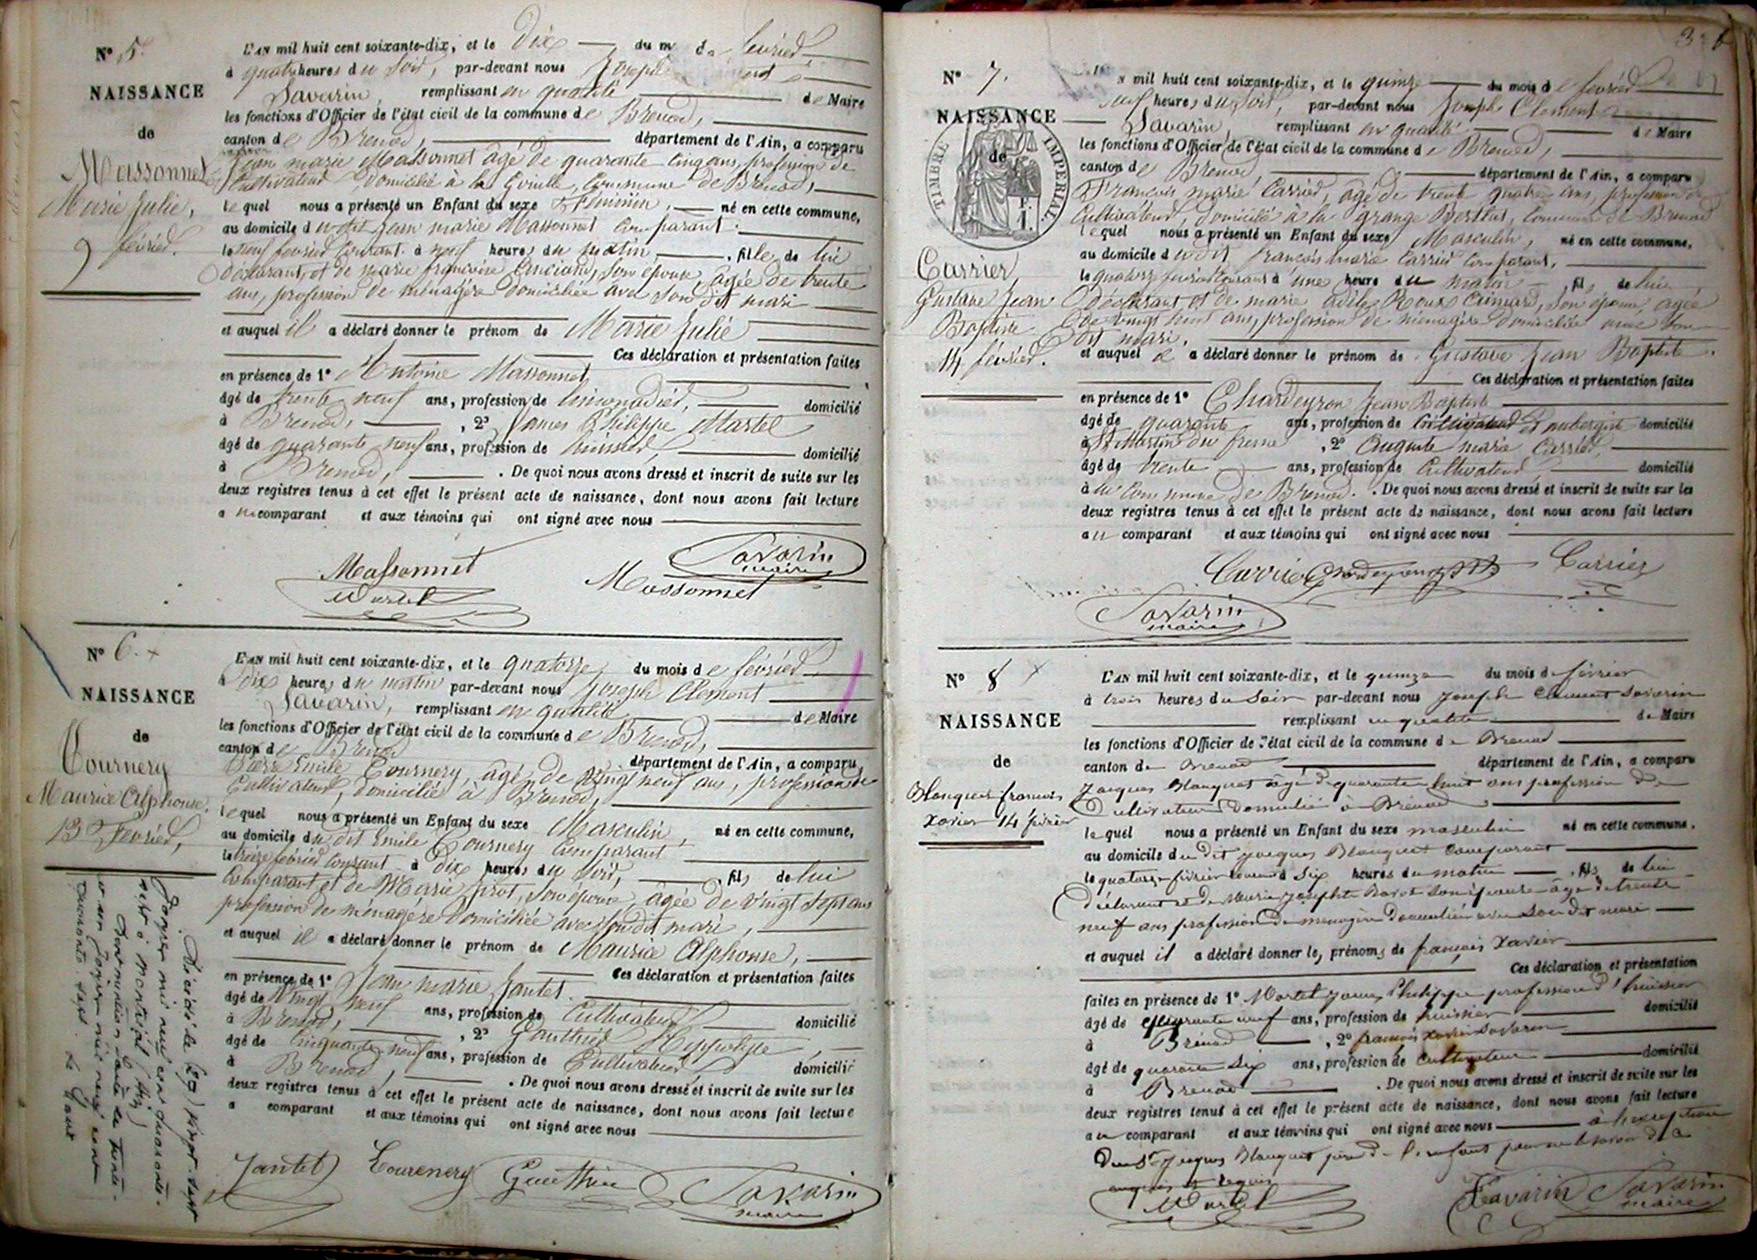 N° 5.
NAISSANCE
de
Massonnet
Marie Julie,
9 février.
L'AN mil huit cent soixante-dix, et le dix du m de février
à quatre heures du soir, par-devant nous Joseph
Savarin, remplissant en qualité de Maire
les fonctions d'Officier de l'état civil de la commune de Brenod,
canton de Brenod département de l'Ain, a comparu
Jean marie Massonnet âgé de quarante cinq ans, profession de
Cultivateur, domicilié à la Gouille, Commune de Brenod,
lequel nous a présenté un Enfant du sexe Féminin, né en cette commune,
au domicile dudit Jean marie Massonnet Comparant.
le neuf février courant à neuf heures du matin, fille de lui
déclarant, et de marie françoise, son épouse, âgée de trente
ans, profession de ménagère domiciliée avec son dit mari
et auquel il a déclaré donner le prénom de Marie Julie
Ces déclaration et présentation faites
en présence de 1° Antoine Massonnet
âgé de trente neuf ans, profession de limonadier, domicilié
à Brenod, , 2° James Philippe Martel
âgé de quarante neuf ans, profession de huissier, domicilié
à Brenod, . De quoi nous avons dressé et inscrit de suite sur les
deux registres tenus à cet effet le présent acte de naissance, dont nous avons fait lecture
au comparant et aux témoins qui ont signé avec nous
Massonnet Savarin
maire
Martel Massonnet
N° 6. +
NAISSANCE
de
Tournery
Maurice Alphonse
13 Février,
L'AN mil huit cent soixante-dix, et le quatorze du mois de février
à dix heures du matin par-devant nous Joseph Clément
Savarin, remplissant en qualité de Maire
les fonctions d'Officier de l'état civil de la commune de Brenod,
canton de Brenod département de l'Ain, a comparu
Pierre Emile Tournery, âgé de Vingt neuf ans, profession de
Cultivateur, domicilié à Brenod,
lequel nous a présenté un Enfant du sexe Masculin, né en cette commune,
au domicile dudit Emile Tournery Comparant
le treize février courant à dix heures du soir, , fils de lui
Comparant et de Marie, son épouse, âgée de vingt sept ans
profession de ménagère domiciliée avec son dit mari,
et auquel il a déclaré donner le prénom de Maurice Alphonse,
Ces déclaration et présentation faites
en présence de 1° Jean marie Jantet
âgé de Vingt neuf ans, profession de Cultivateur domicilié
à Brenod, , 2° Gauthier Hippolyte
âgé de cinquante neuf ans, profession de Cultivateur domicilié
à Brenod, . De quoi nous avons dressé et inscrit de suite sur les
deux registres tenus à cet effet le présent acte de naissance, dont nous avons fait lecture
a comparant et aux témoins qui ont signé avec nous
Jantet Tournery Gauthier Savarin
maire
Décédé le (27) vingt-sept
Janvier mil neuf cent quarante-
sept à
37
N° 7.
NAISSANCE
de
TIMBRE IMPÉRIAL
Carrier
Gustave Jean
Baptiste
14 février.
L'AN mil huit cent soixante-dix, et le quinze du mois de février
neuf heures du soir, par-devant nous Joseph Clément
Savarin, remplissant en qualité de Maire
les fonctions d'Officier de l'état civil de la commune de Brenod,
canton de Brenod, département de l'Ain, a comparu
François marie Carrier, âgé de trente quatre ans, profession de
Cultivateur, domicilié à la grange, Commune de Brenod
lequel nous a présenté un Enfant du sexe Masculin, né en cette commune,
au domicile dudit François marie Carrier Comparant,
le quatorze février courant à une heure du matin, fils de lui
déclarant et de marie adèle, son épouse, âgée
de vingt huit ans, profession de ménagère domiciliée avec son
dit mari,
et auquel il a déclaré donner le prénom de Gustave Jean Baptiste.
Ces déclaration et présentation faites
en présence de 1° Chardeyron Jean Baptiste
âgé de quarante ans, profession de Cultivateur et aubergiste domicilié
à St Martin du fresne , 2° Auguste marie Carrier,
âgé de trente ans, profession de Cultivateur domicilié
à la commune de Brenod. . De quoi nous avons dressé et inscrit de suite sur les
deux registres tenus à cet effet le présent acte de naissance, dont nous avons fait lecture
au comparant et aux témoins qui ont signé avec nous
Carrier Chardeyron Carrier
Savarin
maire
N° 8 +
NAISSANCE
de
Blanquet françois
xavier 14 février
L'AN mil huit cent soixante-dix, et le quinze du mois de février
à trois heures du soir par-devant nous Joseph Clement Savarin
remplissant en qualité de Maire
les fonctions d'Officier de l'état civil de la commune de Brenod
canton de Brenod département de l'Ain, a comparu
Jacques Blanquet âgé de quarante huit ans profession de
Cultivateur Domicilié à Brenod
lequel nous a présenté un Enfant du sexe masculin né en cette commune,
au domicile du dit Jacques Blanquet comparant
le quatorze février courant à six heures du matin , fils de lui
déclarant et de Marie Josephte son épouse âgée de trente
neuf ans profession de ménagère domiciliée avec son dit mari
et auquel il a déclaré donner les prénoms de françois xavier
Ces déclaration et présentation
faites en présence de 1° Martel James Philippe profession d'huissier
âgé de quarante neuf ans, profession de huissier domicilié
à Brenod , 2° françois xavier Savarin
âgé de quarante six ans, profession de cultivateur domicilié
à Brenod . De quoi nous avons dressé et inscrit de suite sur les
deux registres tenus à cet effet le présent acte de naissance, dont nous avons fait lecture
au comparant et aux témoins qui ont signé avec nous à l'exception
du Sr Jacques Blanquet père de l'enfant pour ne le savoir de ce
enquis et requis
Martel Savarin Savarin
maire